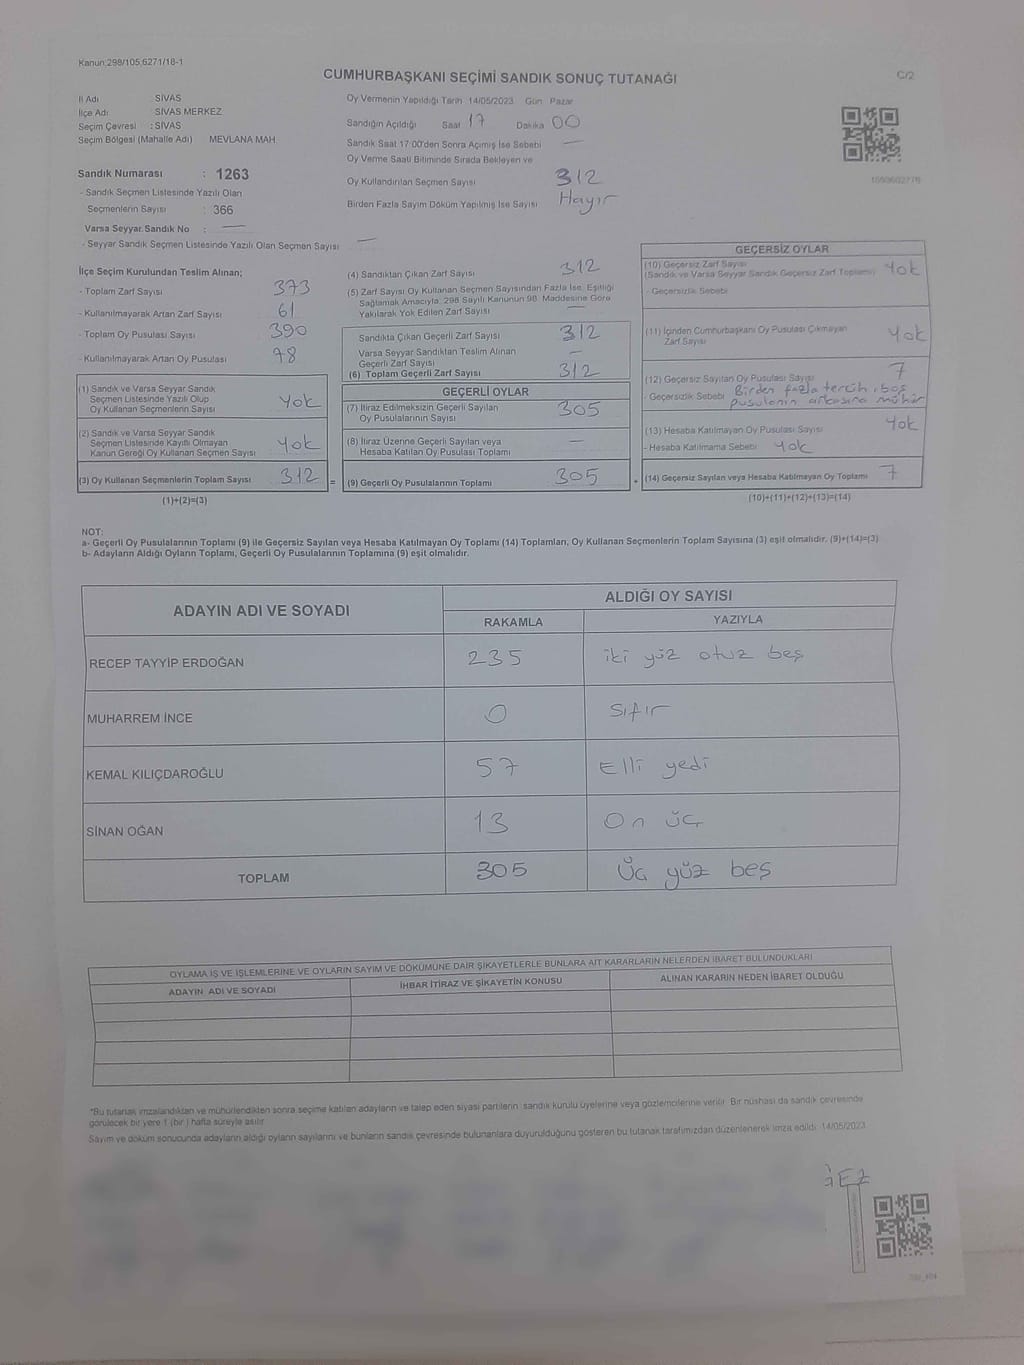 Kanun,298/105,6271/18-1
CUMHURBAŞKANI SEÇİMİ SANDIK SONUÇ TUTANAĞI
C/2
İl Adı SİVAS
İlçe Adı SİVAS MERKEZ
Seçim Çevresi : SİVAS
Seçim Bölgesi (Mahalle Adı) MEVLANA MAH
Sandık Numarası : 1263
- Sandık Seçmen Listesinde Yazılı Olan
Seçmenlerin Sayısı : 366
Varsa Seyyar Sandık No : —
- Seyyar Sandık Seçmen Listesinde Yazılı Olan Seçmen Sayısı —
Oy Vermenin Yapıldığı Tarih 14/05/2023 Gün Pazar
Sandığın Açıldığı Saat 17 Dakika 00
Sandık Saat 17 00'den Sonra Açımış İse Sebebi —
Oy Verme Saati Bitiminde Sırada Bekleyen ve
Oy Kullandırılan Seçmen Sayısı 312
Birden Fazla Sayım Döküm Yapılmış İse Sayısı Hayır
İlçe Seçim Kurulundan Teslim Alınan;
- Toplam Zarf Sayısı 373
- Kullanılmayarak Artan Zarf Sayısı 61
- Toplam Oy Pusulası Sayısı 390
- Kullanılmayarak Artan Oy Pusulası 78
(1) Sandık ve Varsa Seyyar Sandık
Seçmen Listesinde Yazılı Olup
Oy Kullanan Seçmenlerin Sayısı Yok
(2) Sandık ve Varsa Seyyar Sandık
Seçmen Listesinde Kayıtlı Olmayan
Kanun Gereği Oy Kullanan Seçmen Sayısı Yok
(3) Oy Kullanan Seçmenlerin Toplam Sayısı 312 =
(1)+(2)=(3)
(4) Sandıktan Çıkan Zarf Sayısı 312
(5) Zarf Sayısı Oy Kullanan Seçmen Sayısından Fazla İse, Eşitliği
Sağlamak Amacıyla, 298 Sayılı Kanunun 98. Maddesine Göre
Yakılarak Yok Edilen Zarf Sayısı —
Sandıkta Çıkan Geçerli Zarf Sayısı 312
Varsa Seyyar Sandıktan Teslim Alınan
Geçerli Zarf Sayısı —
(6) Toplam Geçerli Zarf Sayısı 312
GEÇERLİ OYLAR
(7) İtiraz Edilmeksizin Geçerli Sayılan
Oy Pusulalarının Sayısı 305
(8) İtiraz Üzerine Geçerli Sayılan veya
Hesaba Katılan Oy Pusulası Toplamı —
(9) Geçerli Oy Pusulalarının Toplamı 305
GEÇERSİZ OYLAR
(10) Geçersiz Zarf Sayısı
(Sandık ve Varsa Seyyar Sandık Geçersiz Zarf Toplamı) Yok
- Geçersizlik Sebebi
(11) İçinden Cumhurbaşkanı Oy Pusulası Çıkmayan
Zarf Sayısı Yok
(12) Geçersiz Sayılan Oy Pusulası Sayısı 7
- Geçersizlik Sebebi Birden fazla tercih, boş
pusulanın arkasına mühür
(13) Hesaba Katılmayan Oy Pusulası Sayısı Yok
- Hesaba Katılmama Sebebi Yok
(14) Geçersiz Sayılan veya Hesaba Katılmayan Oy Toplamı 7
(10)+(11)+(12)+(13)=(14)
NOT:
a- Geçerli Oy Pusulalarının Toplamı (9) ile Geçersiz Sayılan veya Hesaba Katılmayan Oy Toplamı (14) Toplamları, Oy Kullanan Seçmenlerin Toplam Sayısına (3) eşit olmalıdır. (9)+(14)=(3)
b- Adayların Aldığı Oyların Toplamı, Geçerli Oy Pusulalarının Toplamına (9) eşit olmalıdır.
ADAYIN ADI VE SOYADI ALDIĞI OY SAYISI
RAKAMLA YAZIYLA
RECEP TAYYİP ERDOĞAN 235 iki yüz otuz beş
MUHARREM İNCE 0 Sıfır
KEMAL KILIÇDAROĞLU 57 Elli yedi
SİNAN OĞAN 13 On üç
TOPLAM 305 Üç yüz beş
OYLAMA İŞ VE İŞLEMLERİNE VE OYLARIN SAYIM VE DÖKÜMÜNE DAİR ŞİKAYETLERLE BUNLARA AİT KARARLARIN NELERDEN İBARET BULUNDUKLARI
ADAYIN ADI VE SOYADI İHBAR İTİRAZ VE ŞİKAYETİN KONUSU ALINAN KARARIN NEDEN İBARET OLDUĞU
*Bu tutanak imzalandıktan ve mühürlendikten sonra seçime katılan adayların ve talep eden siyasi partilerin sandık kurulu üyelerine veya gözlemcilerine verilir. Bir nüshası da sandık çevresinde
görülecek bir yere 1 (bir) hafta süreyle asılır
Sayım ve döküm sonucunda adayların aldığı oyların sayılarını ve bunların sandık çevresinde bulunanlara duyurulduğunu gösteren bu tutanak tarafımızdan düzenlenerek imza edildi. 14/05/2023